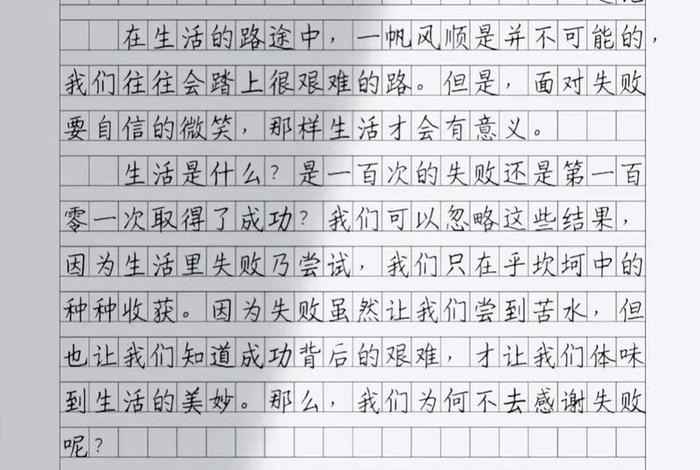 在生活的路途中，一帆风顺是并不可能的，
我们往往会踏上很艰难的路。但是，面对失败
要自信的微笑，那样生活才会有意义。
生活是什么？是一百次的失败还是第一百
零一次取得了成功？我们可以忽略这些结果，
因为生活里失败乃尝试，我们只在乎坎坷中的
种种收获。因为失败虽然让我们尝到苦水，但
也让我们知道成功背后的艰难，才让我们体味
到生活的美妙。那么，我们为何不去感谢失败
呢？